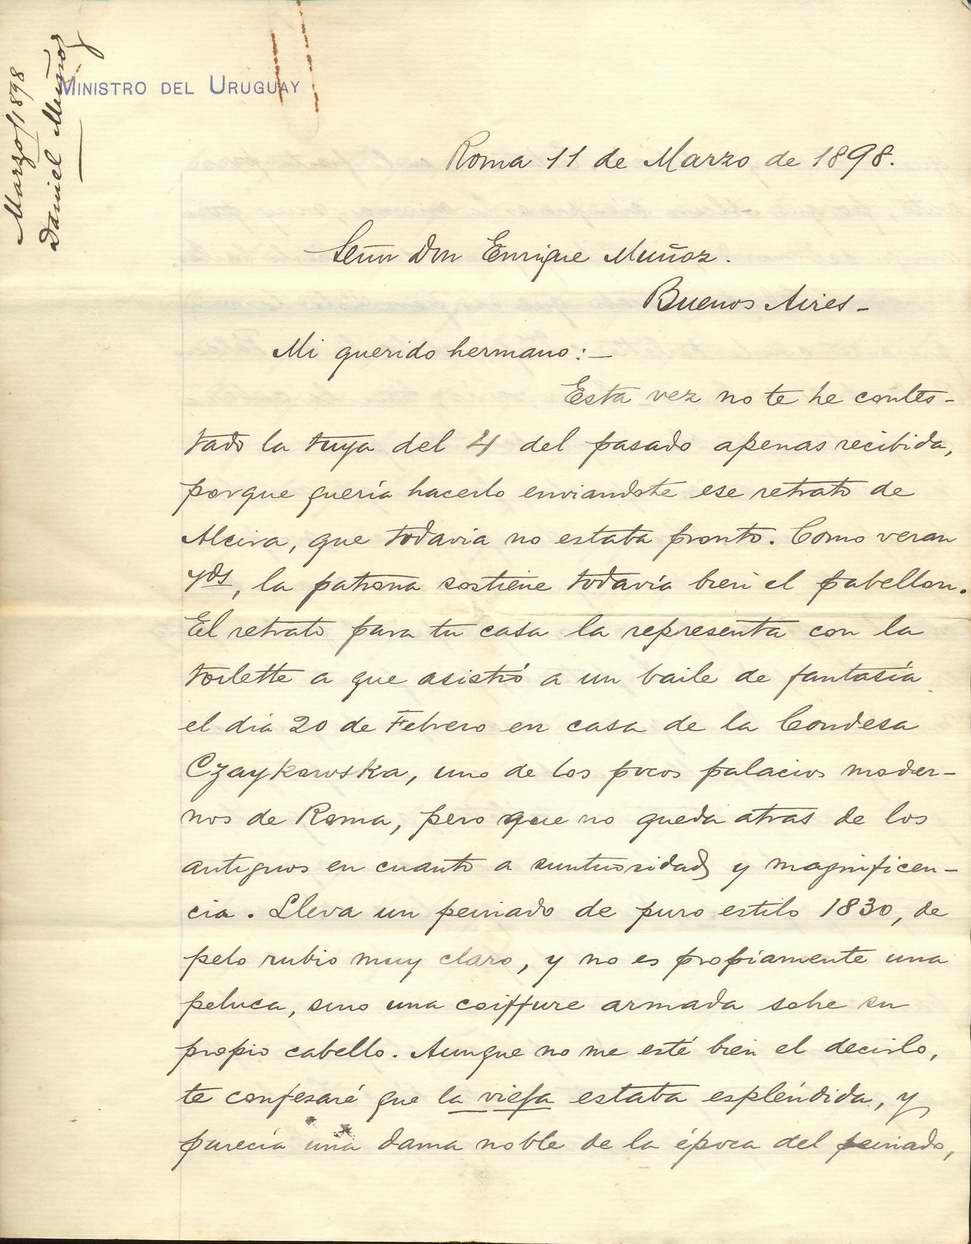 Marzo/1898
Daniel Muñoz
MINISTRO DEL URUGUAY
Roma 11 de Marzo de 1898.
Señor Don Enrique Muñoz.
Buenos Aires—
Mi querido hermano:—
Esta vez no te he contes-
tado la tuya del 4 del pasado apenas recibida,
porque quería hacerlo enviandote ese retrato de
Alcira, que todavia no estaba pronto. Como veran
Vds, la patrona sostiene todavía bien el pabellon.
El retrato para tu casa la representa con la
toilette a que asistió a un baile de fantasía
el dia 20 de Febrero en casa de la Condesa
Czaykowska, uno de los pocos palacios moder-
nos de Roma, pero que no queda atras de los
antiguos en cuanto a suntuosidad y magnificen-
cia. Lleva un peinado de puro estilo 1830, de
pelo rubio muy claro, y no es propiamente una
peluca, sino una coiffure armada sobre su
propio cabello. Aunque no me esté bien el decirlo,
te confesaré que la vieja estaba espléndida, y
parecia una dama noble de la época del peinado,